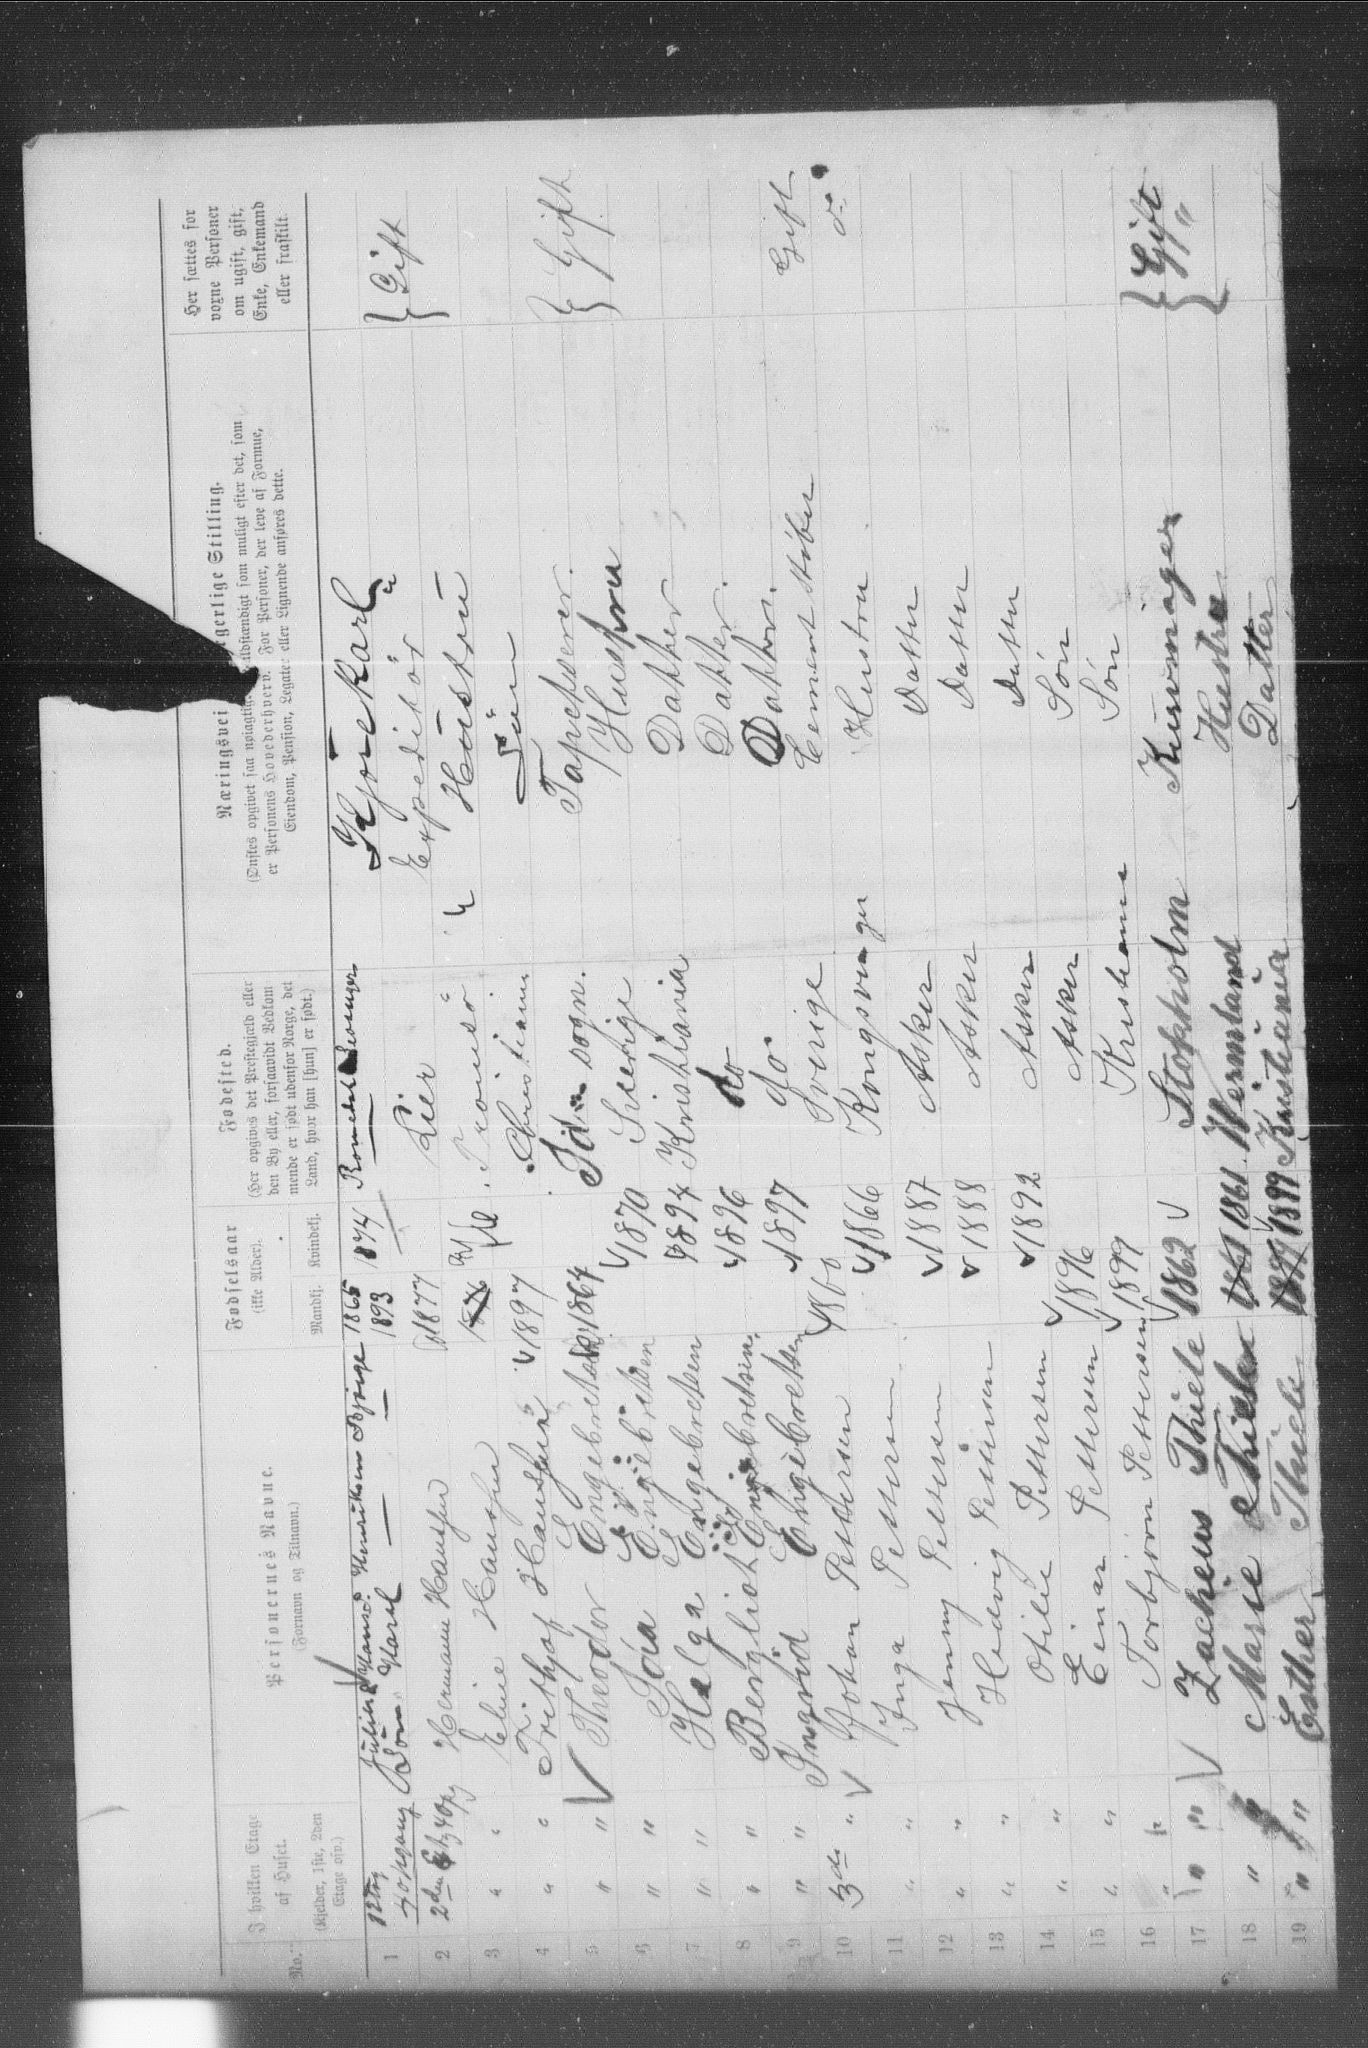 No.
I hvilken Etage af Huset.
(Kjelder, 1ste, 2den Etage osv.)
Personernes Navne.
(Fornavn og Tilnavn.)
Fødselsaar
(ikke Alder).
Mandkj. Kvindekj.
Fødested.
(Her opgives det Prestegjeld eller den By eller, forsaavidt Vedkommende er født udenfor Norge, det Land, hvor han [hun] er født.)
Næringsvei gerlige Stilling.
(Ønskes opgivet saa nøiagtig uldstændigt som muligt efter det, som er Personens Hovederhverv. For Personer, der leve af Formue, Eiendom, Pension, Legater eller Lignende anføres dette.
Her sættes for voxne Personer om ugift, gift, Enke, Enkemand eller fraskilt.
Henriksen 1865 1874
1 Karl 1893 Kjørekarl } Gift
2 2den Hermann Hansen 1877 Lier Expeditör
3 " " Eline Hansen 1876 Tromsö Hüstrü
4 " " Frithjof Hansen 1897 Christiania Sön
5 " " Theodor Engebretsen 1864 Id sogn. Tapetserer. } Gift
6 " " Engebretsen 1870 Sverige Hustru
7 " " Helga Engebretsen 1894 Kristiania Datter
8 " " Bergliot Engebretsen 1896 do Datter.
9 " " Ingrid Engebretsen 1897 do Datter.
10 3de " Johan Pettersen 1860 Sverige Cementstøber Gift
11 " " Inga Pettersen 1866 Kongsvinger Hustru do
12 " " Jenny Pettersen 1887 Asker Datter
13 " " Hedvig Pettersen 1888 Asker Datter
14 " " Otilie Pettersen 1892 Asker Datter
15 " " Einar Pettersen 1896 Asker Sön
16 " " Torbjørn Pettersen 1899 Kristiania Sön
17 " " Zacheus Thiele 1862 Stokholm Kurvmager } Gift
18 " " Marie Thiele 1861 Wermland Hustru "
19 " " Esther Thiele 1899 Kristiania Datter